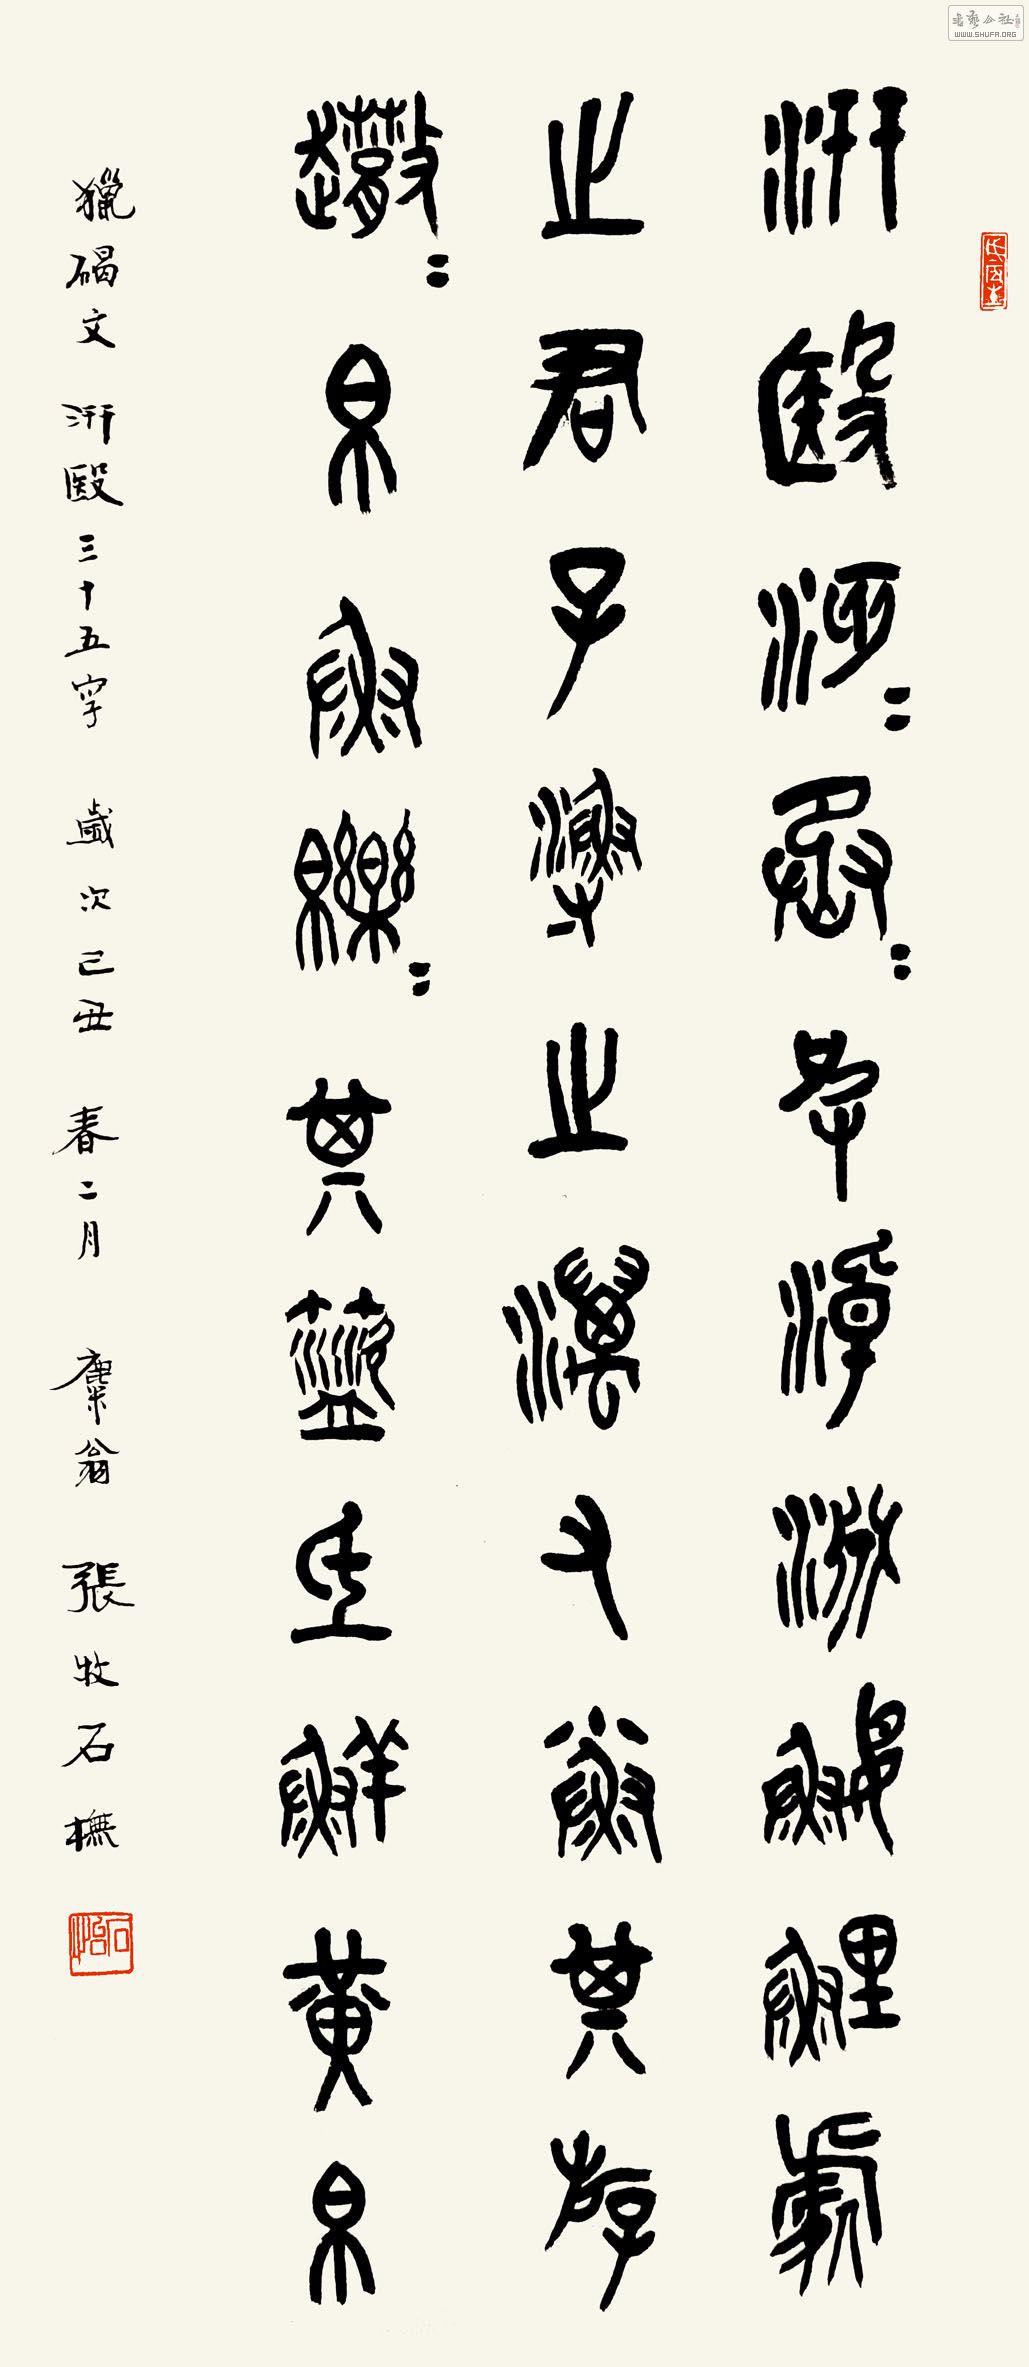 書藝公社
WWW.SHUFA.ORG
汧殹沔=丞=皮淖淵鰋鯉處
之君子漁之澫又小魚其斿
帛魚皪=其盜氐鮮黃帛
獵碣文 汧殹三十五字 歲次己丑 春二月 麋翁 張牧石橅